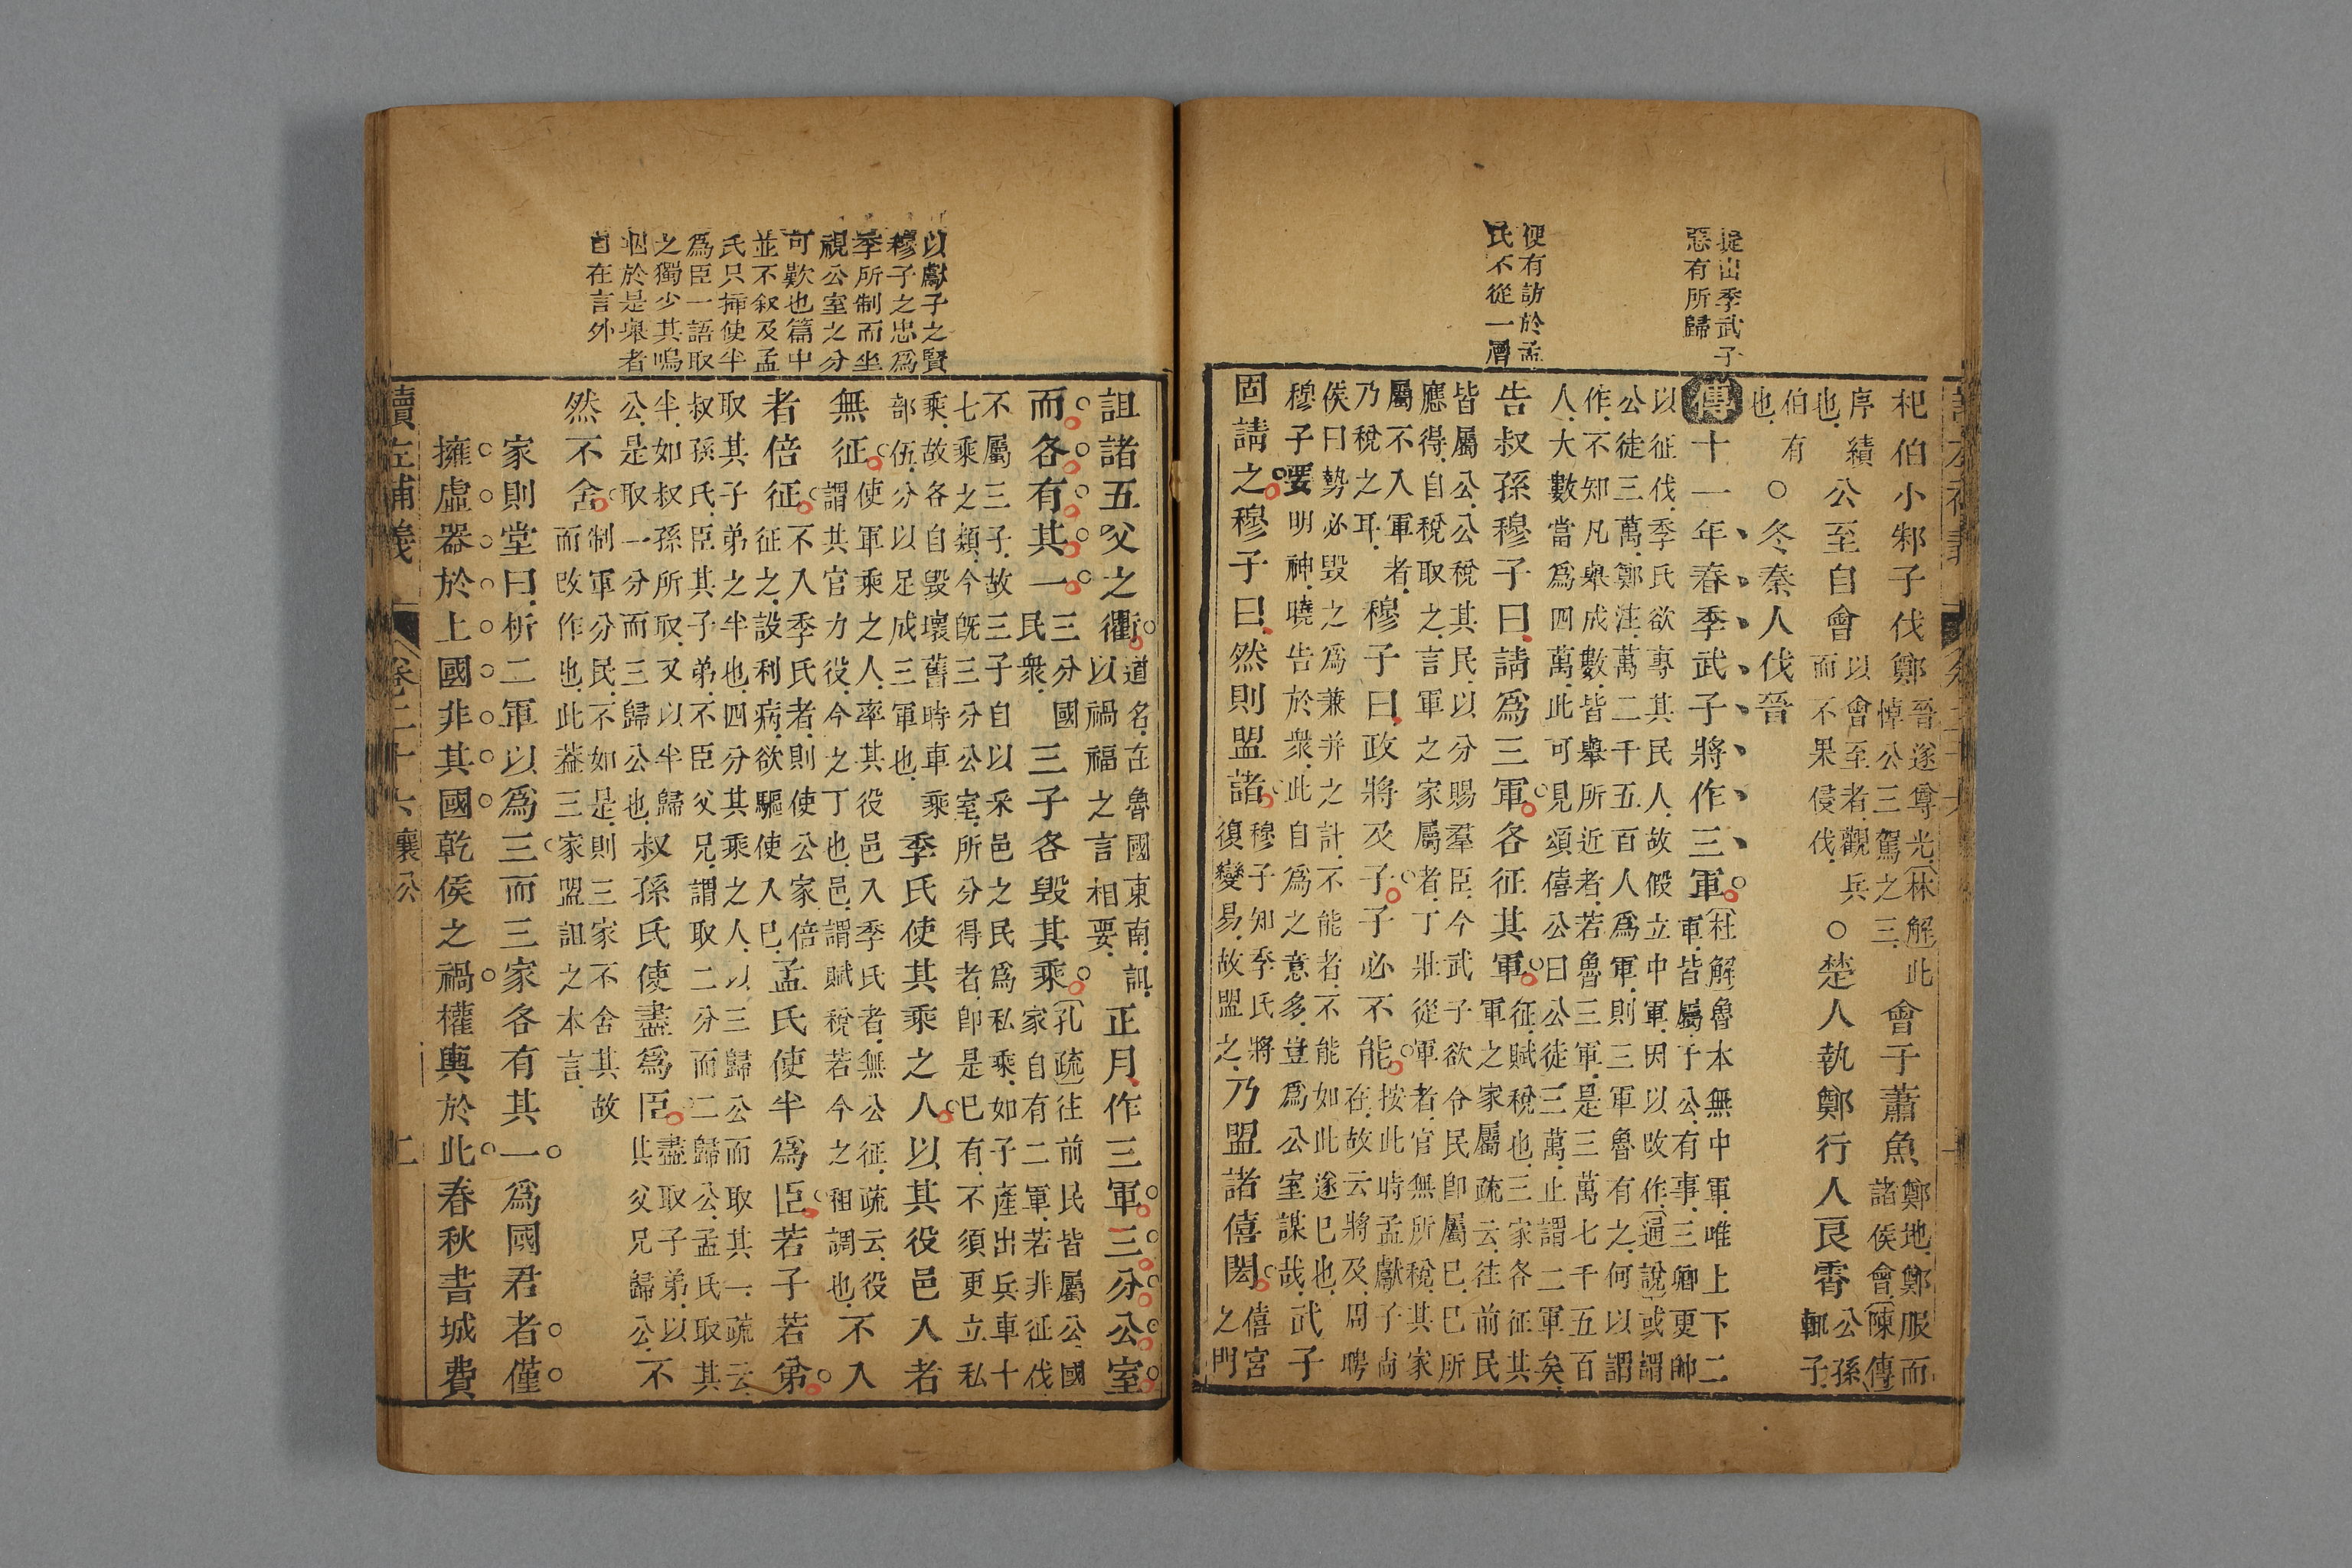 提出季武子
惡有所歸
便有訪於孟
氏不從一層
杞伯小邾子伐鄭晉遂尊光林解此悼公三駕之三會于蕭魚鄭地鄭服而諸侯會陳傳
序績也公至自會以會至者觀兵而不果侵伐○楚人執鄭行人良霄公孫輒子
伯有也○冬秦人伐晉
傳十一年春季武子將作三軍杜解魯本無中軍唯上下二軍皆屬于公有事三卿更帥
以征伐季氏欲專其民人故假立中軍因以改作通說或謂公徒三萬鄭注萬二千五百人爲軍則三軍魯有之何以謂
作不知凡舉成數皆舉所近者若魯三軍是三萬七千五百人大數當爲四萬此可見頌僖公曰公徒三萬止謂二軍矣
告叔孫穆子曰請爲三軍各征其軍征賦稅也三家各征其軍之家屬疏云往前民
皆屬公公稅其民以分賜羣臣今武子欲令民卽屬已已所應得自稅取之言軍之家屬者丁壯從軍者官無所稅其家
屬不入軍者乃稅之耳穆子曰政將及子子必不能按此時孟獻子尚在故云將及周聘
侯曰勢必毀之爲兼并之計不能者不能如此遂已也穆子要明神曉告於衆此自爲之意多豈爲公室謀哉武子
固請之穆子曰然則盟諸穆子知季氏將復變易故盟之乃盟諸僖閎僖宮之門
以獻子之賢
穆子之忠爲
季所制而坐
視公室之分
可歎也篇中
並不叙及孟
氏只插使半
爲臣一語取
之獨少其嗚
咽於是舉者
自在言外
詛諸五父之衢道名在魯國東南詛以禍福之言相要正月作三軍三分公室
而各有其一三分國民衆三子各毀其乘孔疏往前民皆屬公國家自有二軍若非征伐
不屬三子故三子自以采邑之民爲私乘如子產出兵車十七乘之類今旣三分公室所分得者卽是已有不須更立私
乘故各自毀壞舊時車乘部伍分以足成三軍也季氏使其乘之人以其役邑入者
無征使軍乘之人率其役邑入季氏者無公征疏云役謂其官力役今之丁也邑謂賦稅若今之租調也不入
者倍征不入季氏者則使公家倍征之設利病欲驅使入已孟氏使半爲臣若子若弟
取其子弟之半也四分其乘之人以三歸公而取其一疏云叔孫氏臣其子弟不臣父兄謂取二分而二歸公孟氏取其
半如叔孫所取又以半歸公是取一分而三歸公也叔孫氏使盡爲臣盡取子弟以其父兄歸公不
然不舍制軍分民不如是則三家不舍其故而改作也此葢三家盟詛之本言
家則堂曰析二軍以爲三而三家各有其一爲國君者僅
擁虛器於上國非其國乾侯之禍權輿於此春秋書城費
讀左補義 卷二十六 襄公